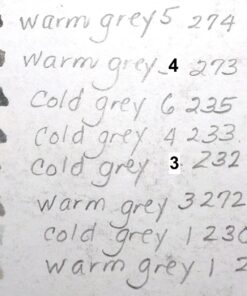 warm grey 5 274
warm grey 4 273
cold grey 6 235
cold grey 4 233
cold grey 3 232
warm grey 3 272
cold grey 1 230
warm grey 1